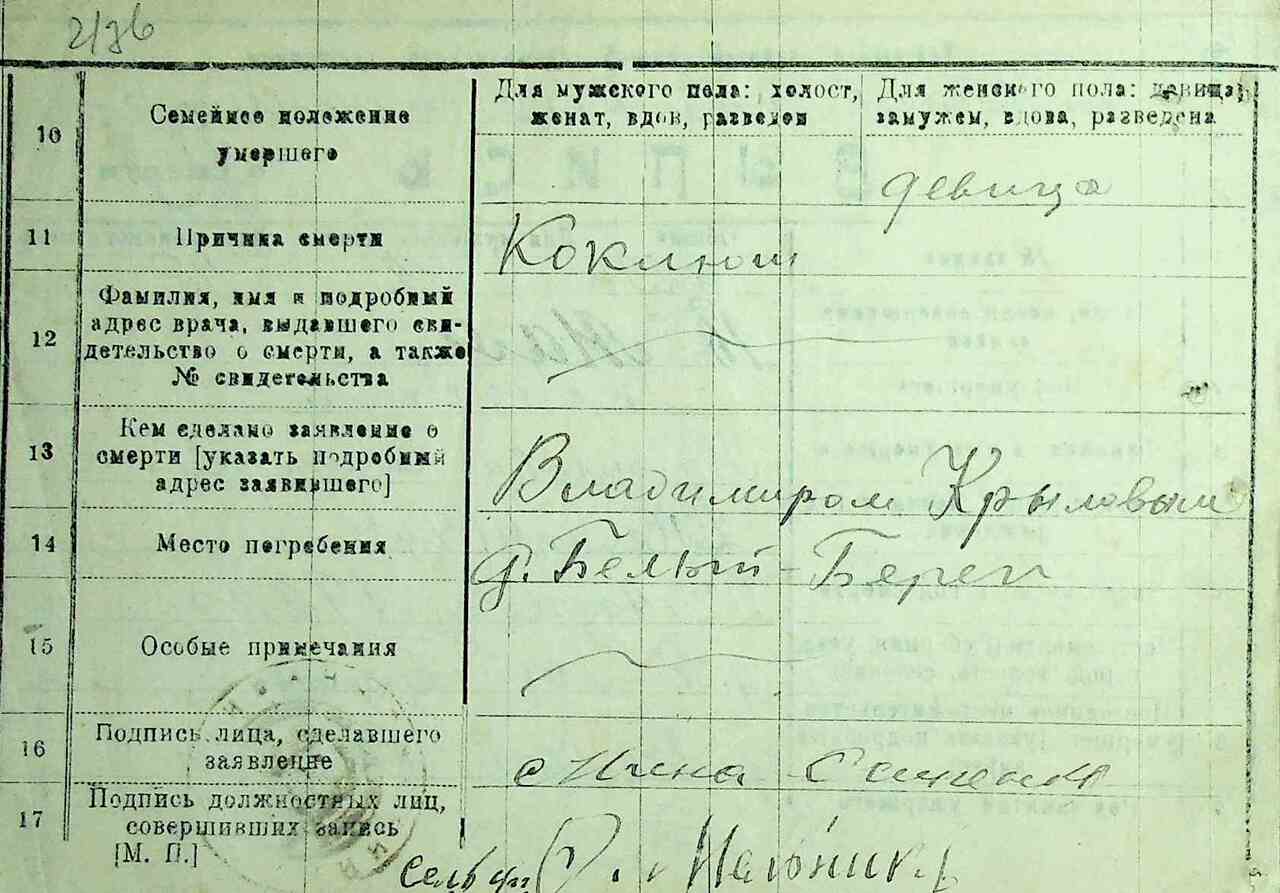 2/36
10
Семейное положение
умершего
Для мужского пола: холост,
женат, вдов, разведен
Для женского пола: девица,
замужем, вдова, разведена
девица
11
Причина смерти
Коклюш
12
Фамилия, имя и подробный
адрес врача, выдавшего сви-
детельство о смерти, а также
№ свидетельства
13
Кем сделано заявление о
смерти [указать подробный
адрес заявившего]
Владимиром Крыловым
14
Место погребения
д. Белый-Берег
15
Особые примечания
16
Подпись лица, сделавшего
заявление
17
Подпись должностных лиц,
совершивших запись
[М. П.]